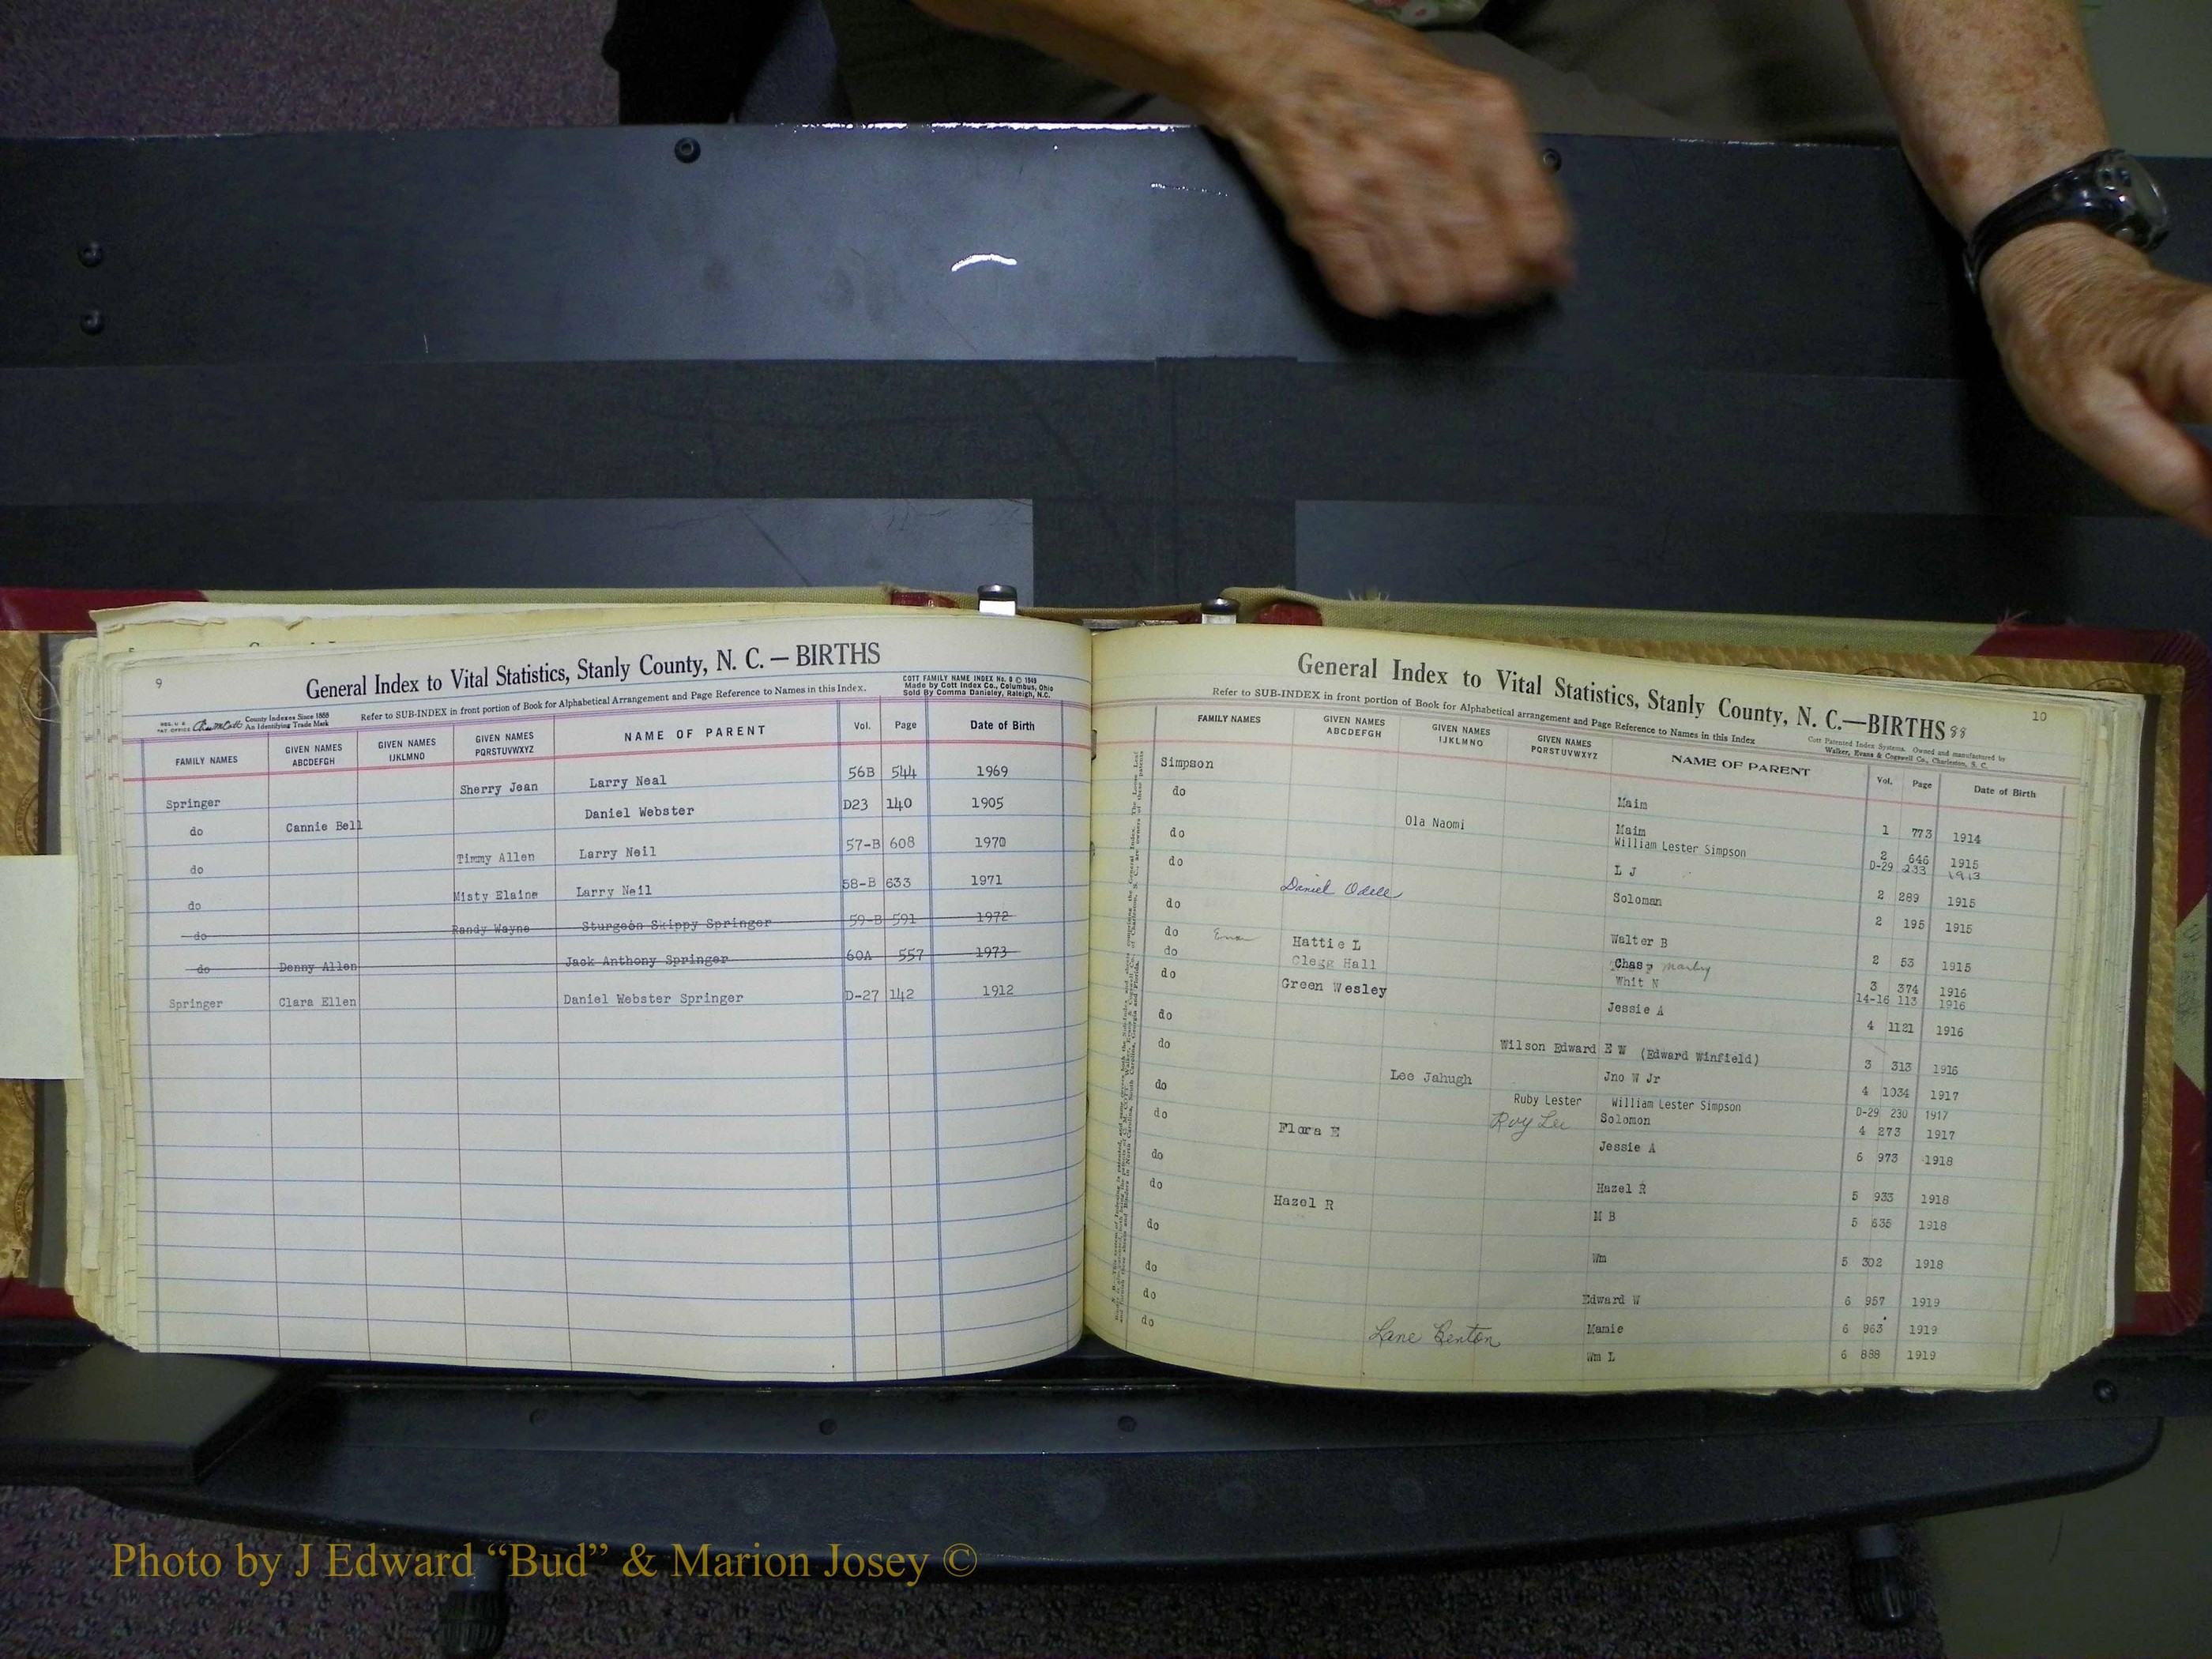 9
General Index to Vital Statistics, Stanly County, N. C. — BIRTHS
COTT FAMILY NAME INDEX No. 8 © 1949
Made by Cott Index Co., Columbus, Ohio
Sold By Comma Danieley, Raleigh, N.C.
REG. U S PAT. OFFICE County Indexes Since 1888 An Identifying Trade Mark
Refer to SUB-INDEX in front portion of Book for Alphabetical Arrangement and Page Reference to Names in this Index.
FAMILY NAMES GIVEN NAMES ABCDEFGH GIVEN NAMES IJKLMNO GIVEN NAMES PQRSTUVWXYZ NAME OF PARENT Vol. Page Date of Birth
Springer Sherry Jean Larry Neal 56B 544 1969
do Cannie Bell Daniel Webster D23 140 1905
do Timmy Allen Larry Neil 57-B 608 1970
do Misty Elaine Larry Neil 58-B 633 1971
do Randy Wayne Sturgeon Skippy Springer 59-B 591 1972
do Denny Allen Jack Anthony Springer 60A 557 1973
Springer Clara Ellen Daniel Webster Springer D-27 142 1912
General Index to Vital Statistics, Stanly County, N. C.—BIRTHS 88
10
Refer to SUB-INDEX in front portion of Book for Alphabetical arrangement and Page Reference to Names in this Index
Cott Patented Index Systems. Owned and manufactured by
Walker, Evans & Cogswell Co., Charleston, S. C.
FAMILY NAMES GIVEN NAMES ABCDEFGH GIVEN NAMES IJKLMNO GIVEN NAMES PQRSTUVWXYZ NAME OF PARENT Vol. Page Date of Birth
Simpson Maim 1 773 1914
do Maim 2 646 1915
Ola Naomi William Lester Simpson D-29 233 1913
do L J 2 289 1915
do Daniel Odell Soloman 2 195 1915
do Walter B 2 53 1915
do Hattie L Chas 3 374 1916
do Clegg Hall Whit N 14-16 113 1916
do Green Wesley Jessie A 4 1121 1916
do Wilson Edward E W (Edward Winfield) 3 313 1916
do Lee Jahugh Jno W Jr 4 1034 1917
Ruby Lester William Lester Simpson D-29 230 1917
do Roy Lee Solomon 4 273 1917
do Flora E Jessie A 6 973 1918
do Hazel R 5 933 1918
do Hazel R M B 5 635 1918
do Wm 5 302 1918
do Edward W 6 957 1919
do Mamie 6 963 1919
do Lane Benton Wm L 6 888 1919
Photo by J Edward “Bud” & Marion Josey ©